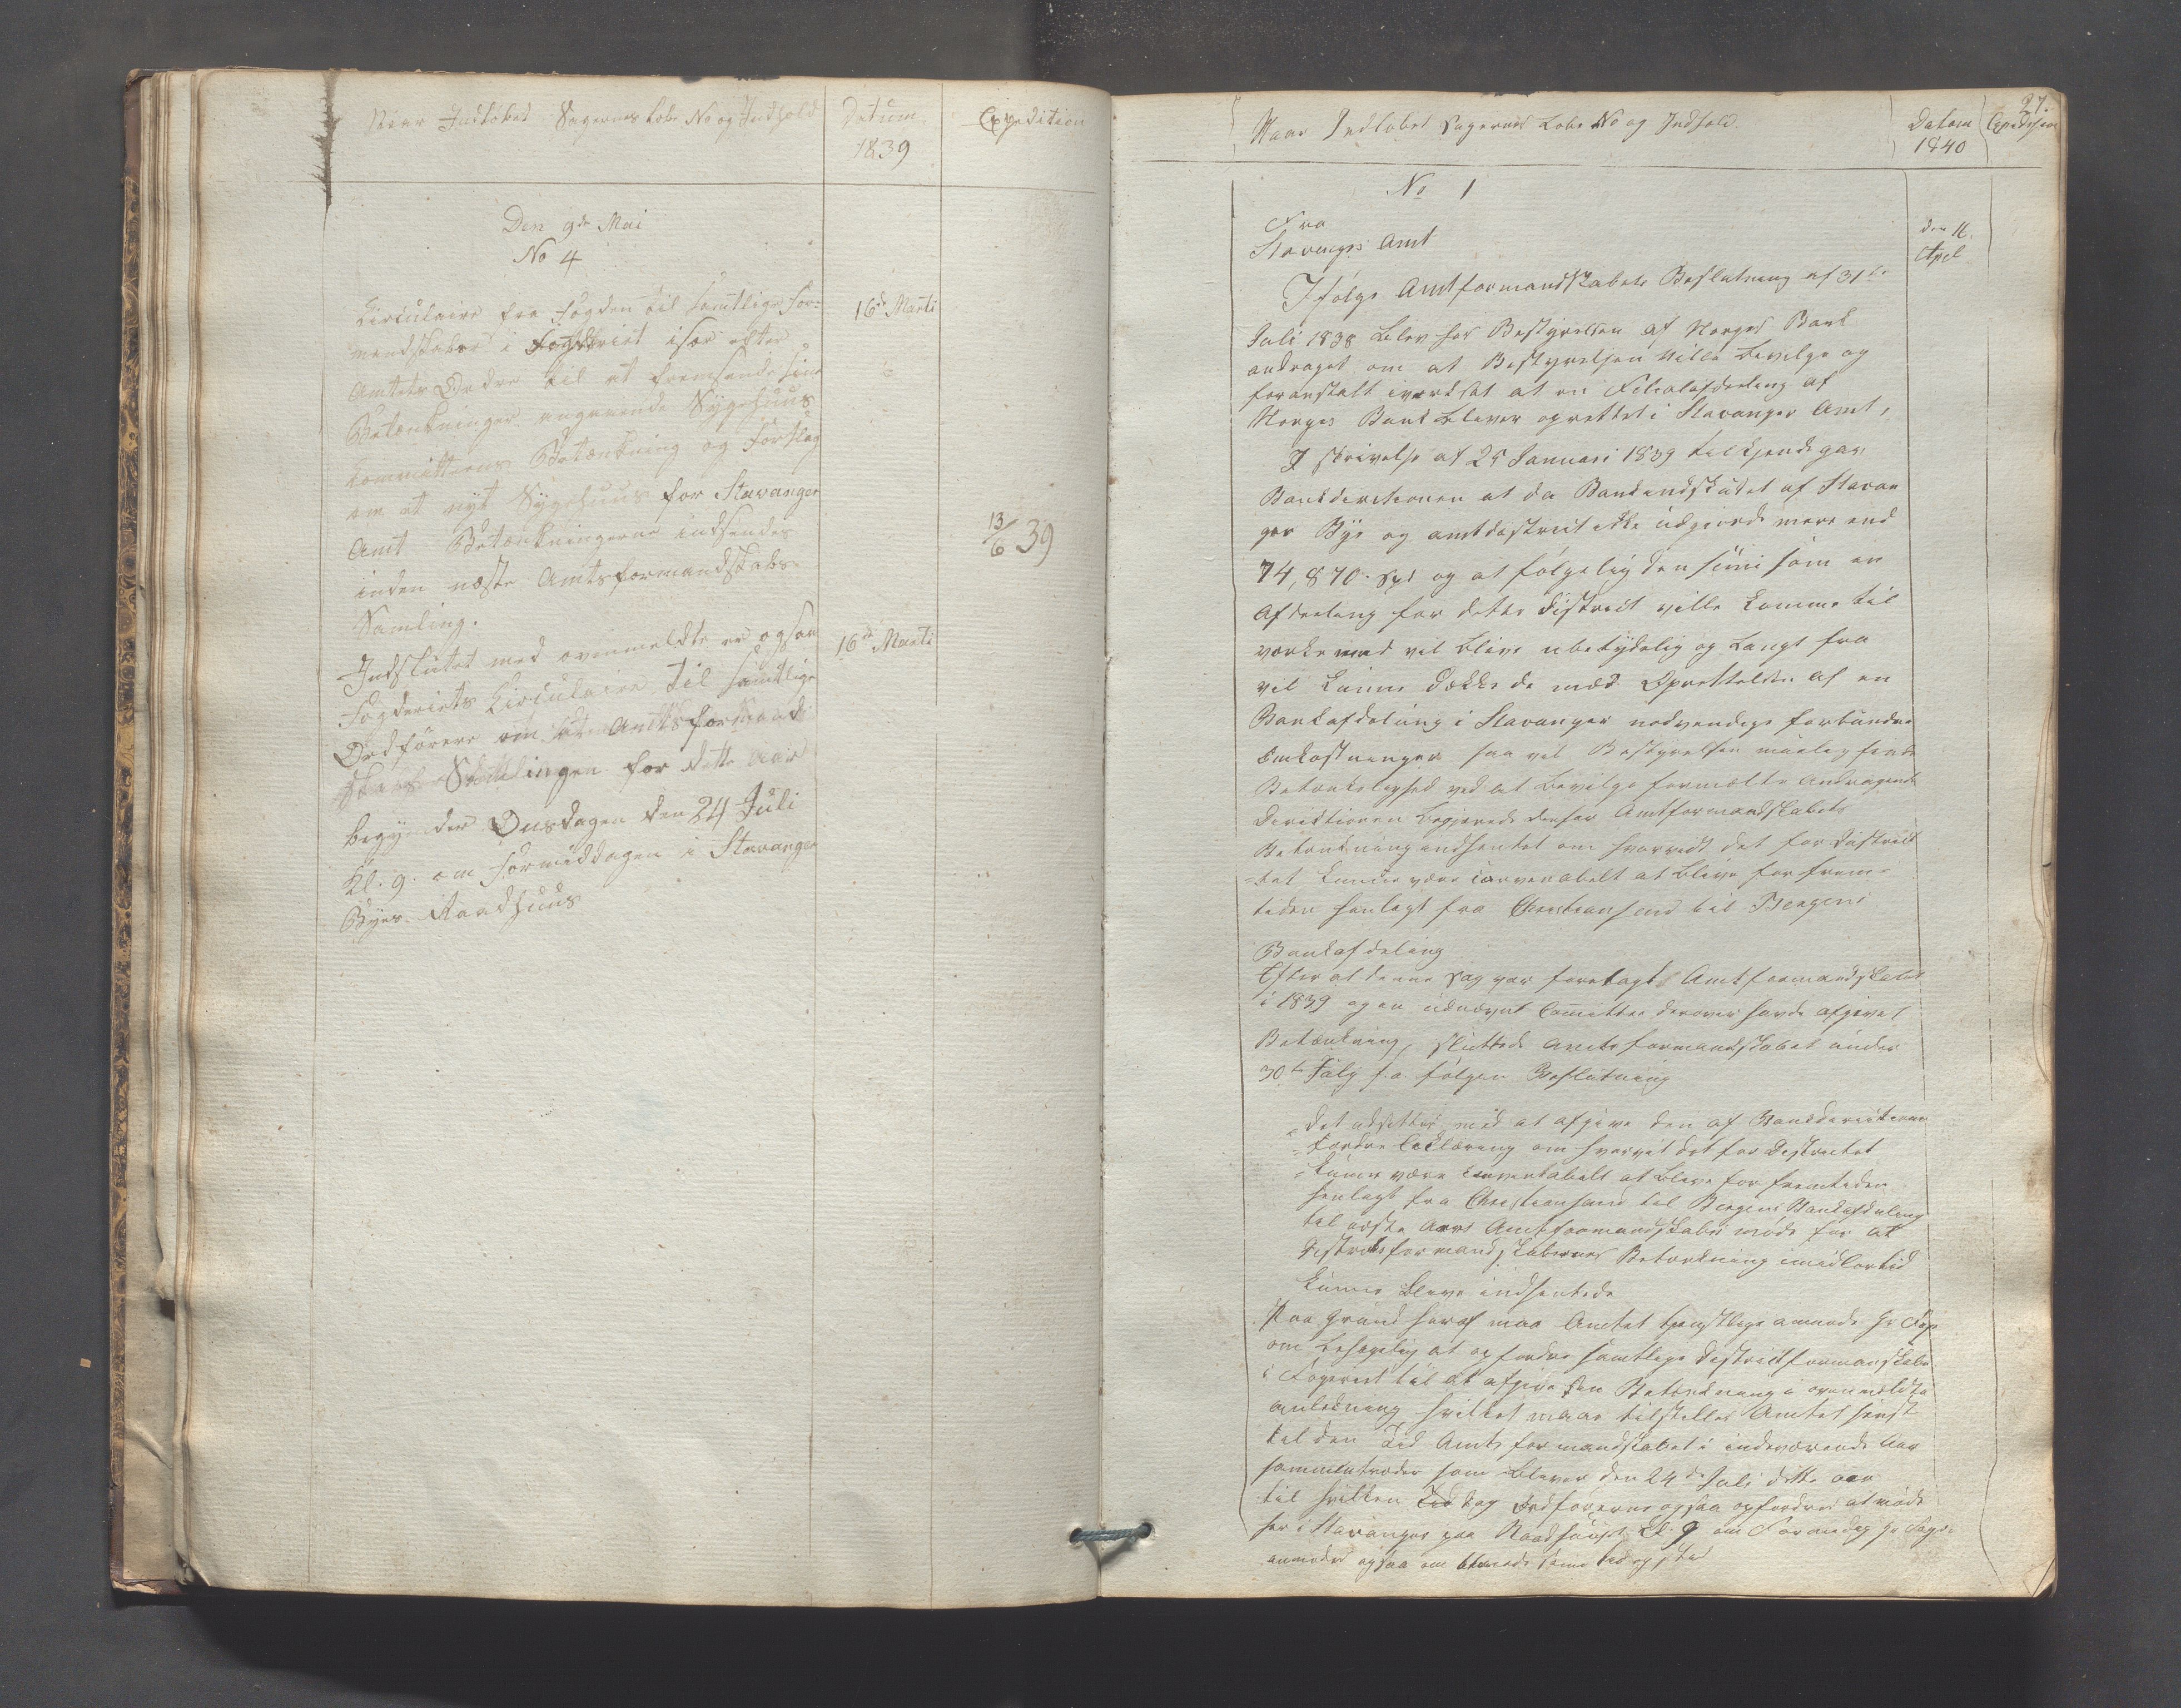 Naar Indlobet Sagernes Lobe No og Indhold
Datum
1839
Expedition
Den 9de Mai
No 4
Circulaire fra Fogden til samtlige For-
mandskaber i Fogderiet især efter
Amtets Ordre til at fremsende sine
Betænkninger angaaende Sygehuus
Committeens Betænkning og Forslag
om et nyt Sygehuus for Stavanger
Amt Betænkningerne indsendes
inden næste Amtsformandskabs
Samling.
16de Marti
13/6 39
Indsluttet med ovenmeldte er ogsaa
Fogderiets Circulaire til samtlige
Ordförere om at Amtsformand
skabs Samlingen for dette Aar
begynder Onsdagen den 24 Juli
Kl. 9. om Formiddagen i Stavanger
Byes Raadhuus
16de Marti
27.
Naar Indlobet Sagernes Lobe No og Indhold.
Datum
1840
Expedition
No 1
Fra
Stavanger Amt
den 11
Apel
Ifölge Amtformandskabets Beslutning af 31te
Juli 1838 blev hos Bestyrelsen af Norges Bank
andraget om at Bestyrelsen ville bevilge og
foranstalt iverksat at en Filialafdeeling af
Norges Bank bliver oprettet i Stavanger Amt,
I skrivelse af 25 Januari 1839 tilkjendegav
Bankdirectionen at da Bankindskudet af Stavan
ger Bye og amtdistrict ikke udgjorde mere end
74,870 Spd og at fölgelig den som en
Afdeeling for dette District ville komme til
verke med vil blive ubetydelig og langt fra
vil kunne dække de med Oprettelsen af en
Bankafdeling i Stavanger nodvendige forbundne
Omkostninger saa vil Bestyrelsen finde
Betænkelighed ved at bevilge formelte Andragende
Directionen begjerede derfor Amtformandskabets
Betænkning indhentet om hvorvidt det for District
-tet kunne være convenabelt at blive for frem-
tiden henlagt fra Christiansand til Bergens
Bankafdeling
Efter at denne Sag var foretaget Amtformandskabet
i 1839 og en udnævnt Committee derover havde afgivet
Betænkning, sluttede Amtsformandskabet under
30te July f.a. fölgen Beslutning
"Det udsettes med at afgive den af Bankdirectionen
"fordrede Erklæring om hvorvit det for Districtet
"kunne være convenabelt at blive for fremtiden
henlagt fra Christiansand til Bergens Bankafdeling
til næste Aars Amtformandskabs möde for at
Districtsformandskabernes Betænkning imidlertid
kunne blive indhentede
Paa Grund heraf maa Amtet tjenstligst anmode Hr
om behageligt at opfordre samtlige Districtformandskaber
i Fogeriet til at afgive sin Betænkning i ovenmeldte
anledning hvilket maae tilstilles Amtet senst
til den Tid Amts formandskabet i indeværende Aar
sammentreder som bliver den 24de Juli dette aar
til hvilken Dag Ordförerne ogsaa opfordres at möde
her i Stavanger paa Raadhuuset Kl. 9 om Formidag Hr Foge-
anmodes ogsaa om Tid og Sted